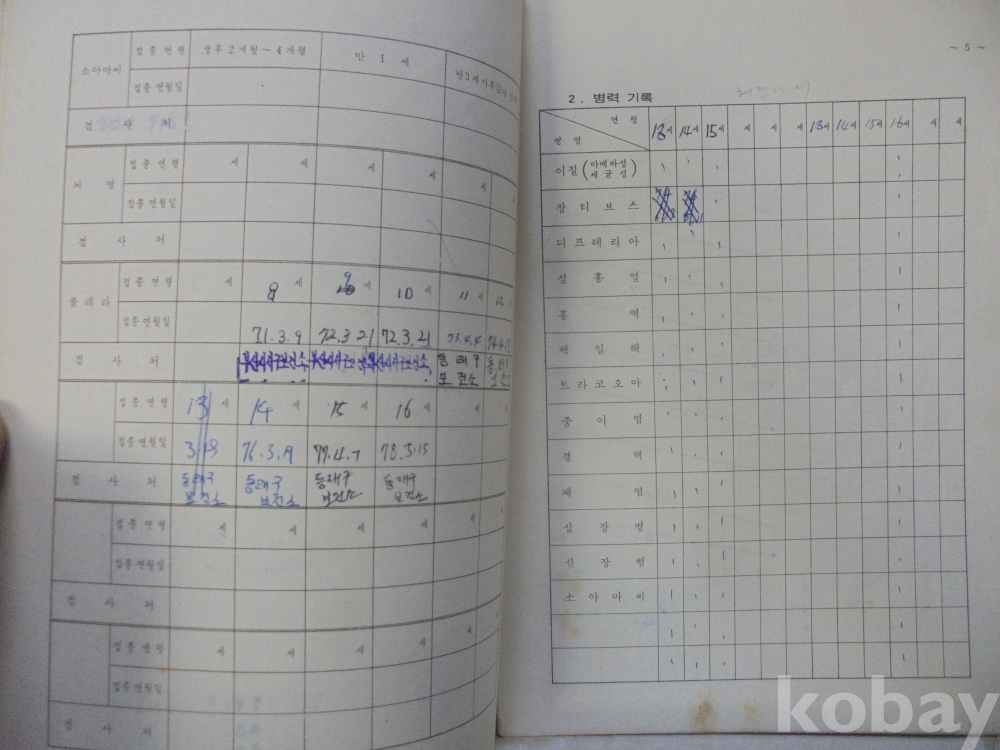 소아마비 접종 연령 생후 2 개월 ~ 4 개월 만 1 세
접종 연월일
검 사 처
뇌 염 접종 연령 세 세 세 세
접종 연월일
검 사 처
콜레라 접종 연령 세 8 세 9 세 10 세 11 세 12 세
접종 연월일 71.3.9 72.3.21 72.3.21 73.4.4
검 사 처 동래구 보건소
접종 연령 13 세 14 세 15 세 16 세 세 세
접종 연월일 3.19 76.3.19 77.4.7 78.3.15
검 사 처 동래구 보건소 동래구 보건소 동래구 보건소 동래구 보건소
접종 연령 세 세 세 세 세 세
접종 연월일
검 사 처
접종 연령 세 세 세 세
접종 연월일
검 사 처
~ 5 ~
2 . 병력 기록
연 령 13세 14세 15세 세 세 세 13세 14세 15세 16세 세 세
병 명
이질 (아메바성 세균성)
장 티 브 스
디 프 테 리 아
성 홍 열
홍 역
백 일 해
트 라 코 오 마
중 이 염
결 핵
폐 염
심 장 병
신 장 병
소 아 마 비
kobay